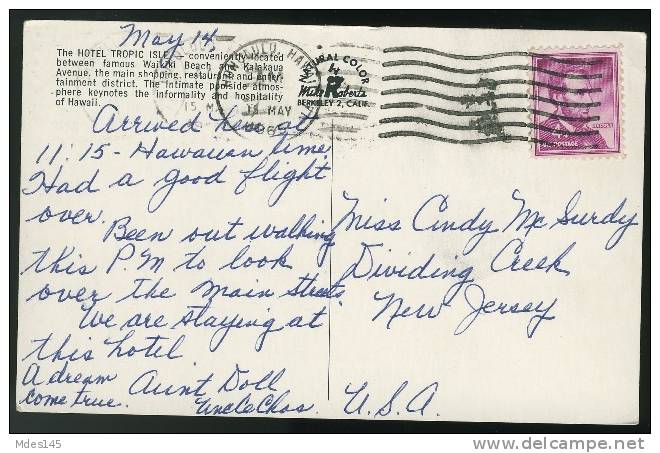 May 14,
The HOTEL TROPIC ISLE - conveniently located
between famous Waikiki Beach and Kalakaua
Avenue, the main shopping, restaurant and enter-
tainment district. The intimate poolside atmos-
phere keynotes the informality and hospitality
of Hawaii.
Arrived here at
11:15 - Hawaiian time
Had a good flight
over.
Been out walking
this P.M to look
over the main streets.
We are staying at
this hotel
A dream
come true.
Aunt Doll
Uncle Chas.
HONOLULU, HAWAII
15 MAY
NATURAL COLOR
Mike Roberts
BERKELEY 2, CALIF.
POSTAGE
Miss Cindy Mc Surdy
Dividing Creek
New Jersey
U.S.A.
Mdes145
delcampe.net